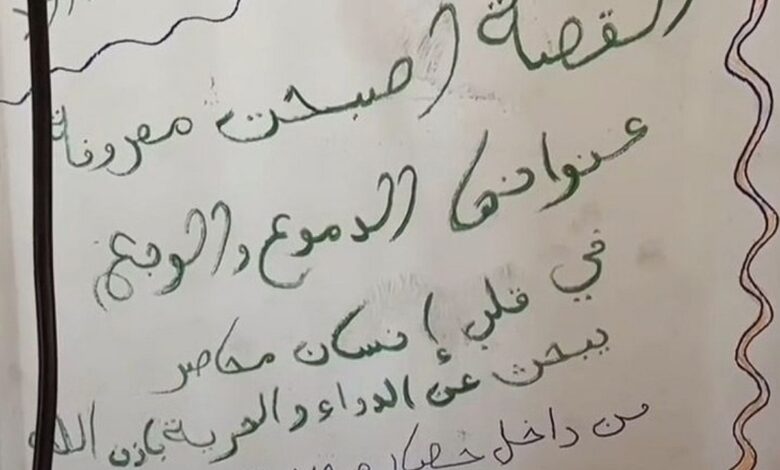 القصة اصبحت معروفة
عنوانها الدموع والوجع
في قلب إنسان محاصر
يبحث عن الدواء والحرية بإذن الله
من داخل حصار